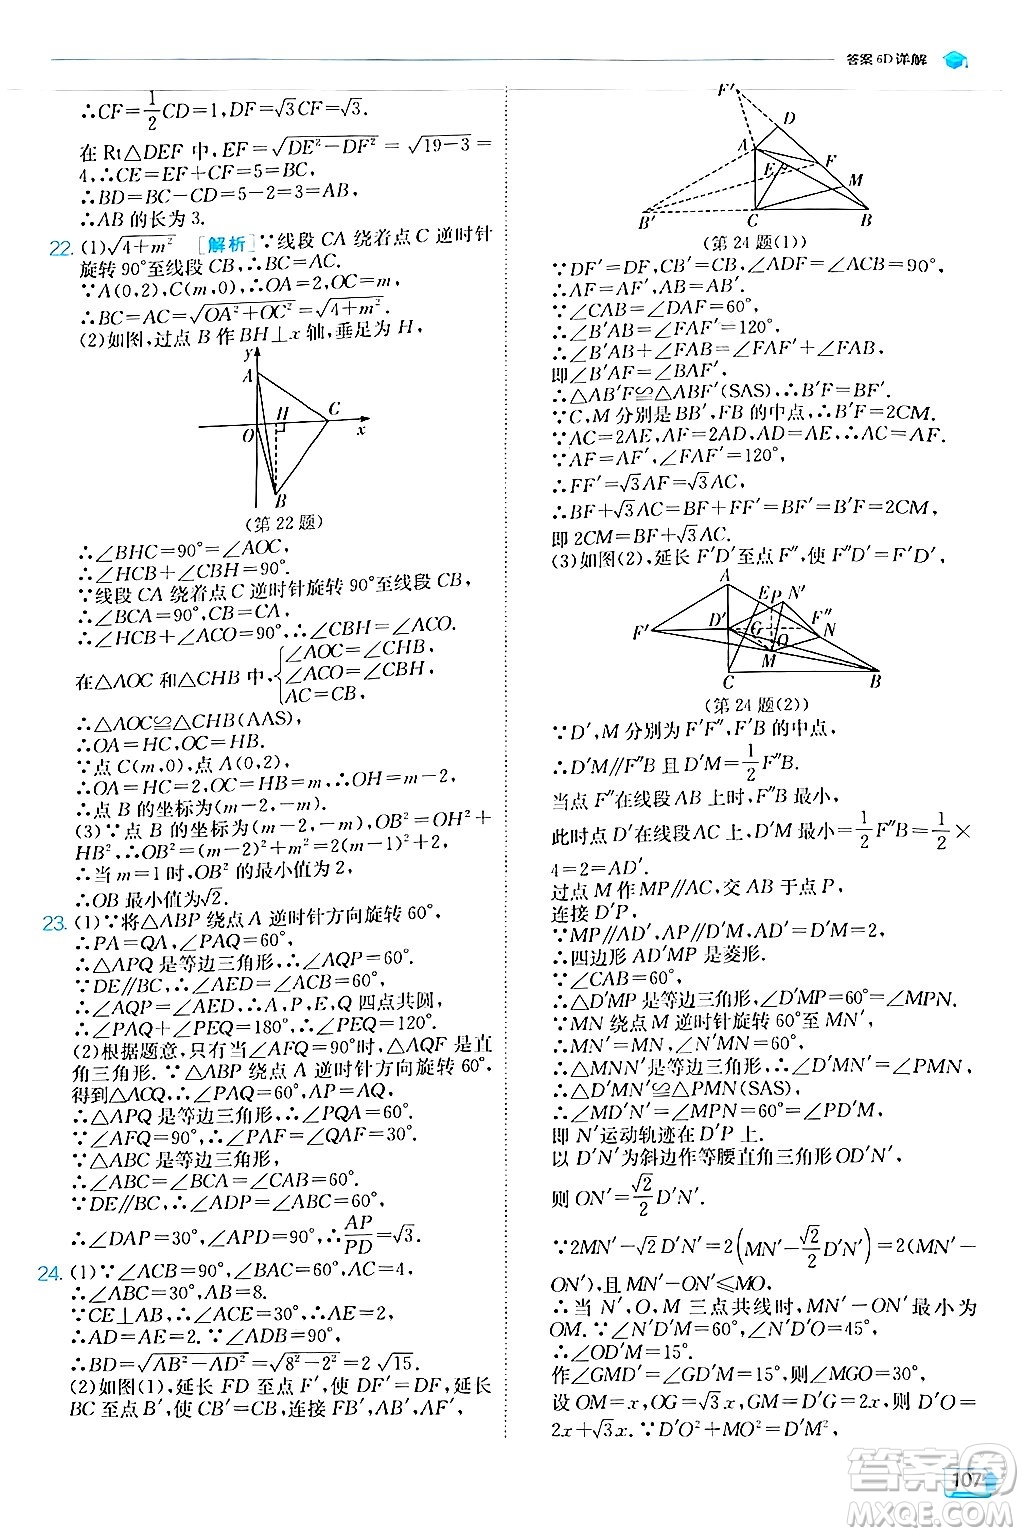 答案6D详解
∴CF=1/2CD=1,DF=√3CF=√3.
在 Rt△DEF 中,EF=√(DE²-DF²)=√(19-3)=
4,∴CE=EF+CF=5=BC.
∴BD=BC-CD=5-2=3=AB.
∴AB 的长为 3.
22. (1)√(4+m²) [解析]∵线段 CA 绕着点 C 逆时针
旋转 90°至线段 CB,∴BC=AC.
∵A(0,2),C(m,0),∴OA=2,OC=m.
∴BC=AC=√(OA²+OC²)=√(4+m²).
(2)如图,过点 B 作 BH⊥x 轴,垂足为 H,
y
A
H
C
O
x
B
(第 22 题)
∴∠BHC=90°=∠AOC,
∴∠HCB+∠HBC=90°.
∵线段 CA 绕着点 C 逆时针旋转 90°至线段 CB,
∴∠BCA=90°,CB=CA.
∴∠HCB+∠ACO=90°,∴∠CBH=∠ACO.
在△AOC 和△CHB 中,{∠AOC=∠CHB,
∠ACO=∠CBH,
AC=CB,
∴△AOC≌△CHB(AAS).
∴OA=HC,OC=HB.
∵点 C(m,0),点 A(0,2),
∴OA=HC=2,OC=HB=m,∴OH=m-2.
∴点 B 的坐标为(m-2,-m).
(3)∵点 B 的坐标为(m-2,-m),OB²=OH²+
HB²,∴OB²=(m-2)²+m²=2(m-1)²+2,
∴当 m=1 时,OB² 的最小值为 2,
∴OB 最小值为√2.
23. (1)∵将△ABP 绕点 A 逆时针方向旋转 60°,
∴PA=QA,∠PAQ=60°,
∴△APQ 是等边三角形,∴∠AQP=60°.
∵DE∥BC,∴∠AED=∠ACB=60°,
∴∠AQP=∠AED,∴A,P,E,Q 四点共圆,
∴∠PAQ+∠PEQ=180°,∴∠PEQ=120°.
(2)根据题意,只有当∠AFQ=90°时,△AQF 是直
角三角形. ∵△ABP 绕点 A 逆时针方向旋转 60°,
得到△ACQ,∴∠PAQ=60°,AP=AQ,
∴△APQ 是等边三角形,∴∠PQA=60°.
∵∠AFQ=90°,∴∠PAF=∠QAF=30°.
∵△ABC 是等边三角形,
∴∠ABC=∠BCA=∠BAC=60°.
∵DE∥BC,∴∠ADP=∠ABC=60°,
∴∠DAP=30°,∠APD=90°,∴AP/PD=√3.
24. (1)∵∠ACB=90°,∠BAC=60°,AC=4,
∴∠ABC=30°,AB=8.
∵CE⊥AB,∴∠ACE=30°,∴AE=2.
∴AD=AE=2. ∵∠ADB=90°,
∴BD=√(AB²-AD²)=√(8²-2²)=2√15.
(2)如图(1),延长 FD 至点 F′,使 DF′=DF,延长
BC 至点 B′,使 CB′=CB,连接 FB′,AB′,AF′,
F′
D
A
E
F
M
B′
C
B
(第 24 题(1))
∵DF′=DF,CB′=CB,∠ADF=∠ACB=90°,
∴AF=AF′,AB=AB′.
∵∠CAB=∠DAF=60°,
∴∠B′AB=∠FAF′=120°,
∴∠B′AB+∠BAF=∠FAF′+∠BAF,
即∠B′AF=∠BAF′.
∴△AB′F≌△ABF′(SAS),∴B′F=BF′.
∵C,M 分别是 BB′,FB 的中点,∴B′F=2CM.
∵AC=2AE,AF=2AD,AD=AE,∴AC=AF.
∵AF=AF′=AC,∠FAF′=120°,
∴FF′=√3AF=√3AC,
∴BF+√3AC=BF+FF′=BF′=B′F,
即 2CM=BF+√3AC.
(3)如图(2),延长 F′D′至点 F″,使 F′D′=D′F″,
A
E
P
N′
F′
D′
G
F″
N
O
M
C
B
(第 24 题(2))
∵D′,M 分别为 F′F″,F′B 的中点,
∴D′M∥F″B 且 D′M=1/2F″B.
当点 F″在线段 AB 上时,F″B 最小,
此时点 D′在线段 AC 上,D′M 最小=1/2F″B=1/2×
4=2=AD′.
过点 M 作 MP∥AC,交 AB 于点 P,
连接 D′P.
∵MP∥AD′,AP∥D′M,AD′=D′M=2,
∴四边形 AD′MP 是菱形.
∵∠CAB=60°,
∴△D′MP 是等边三角形,∠D′MP=60°=∠MPN.
∵MN 绕点 M 逆时针旋转 60°至 MN′,
∴MN=MN′,∠N′MN=60°=∠D′MP,
∴△MNN′是等边三角形,∠D′MN′=∠PMN,
∴△D′MN′≌△PMN(SAS),
∴∠MD′N′=∠MPN=60°=∠MD′P,
即 N′运动轨迹在 D′P 上.
以 D′N′为斜边作等腰直角三角形 OD′N′,
则 ON′=√2/2D′N′.
∵2MN′-√2D′N′=2(MN′-√2/2D′N′)=2(MN′-
ON′),且 MN′-ON′≤MO.
∴当 N′,O,M 三点共线时,MN′-ON′最小为
OM. ∵∠N′D′M=60°,∠N′D′O=45°,
∴∠OD′M=15°.
作∠GMD′=∠GD′M=15°,则∠MGO=30°,
设 OM=x,OG=√3x,GM=GD′=2x,则 D′O=
2x+√3x. ∵D′O²+MO²=D′M²,
107